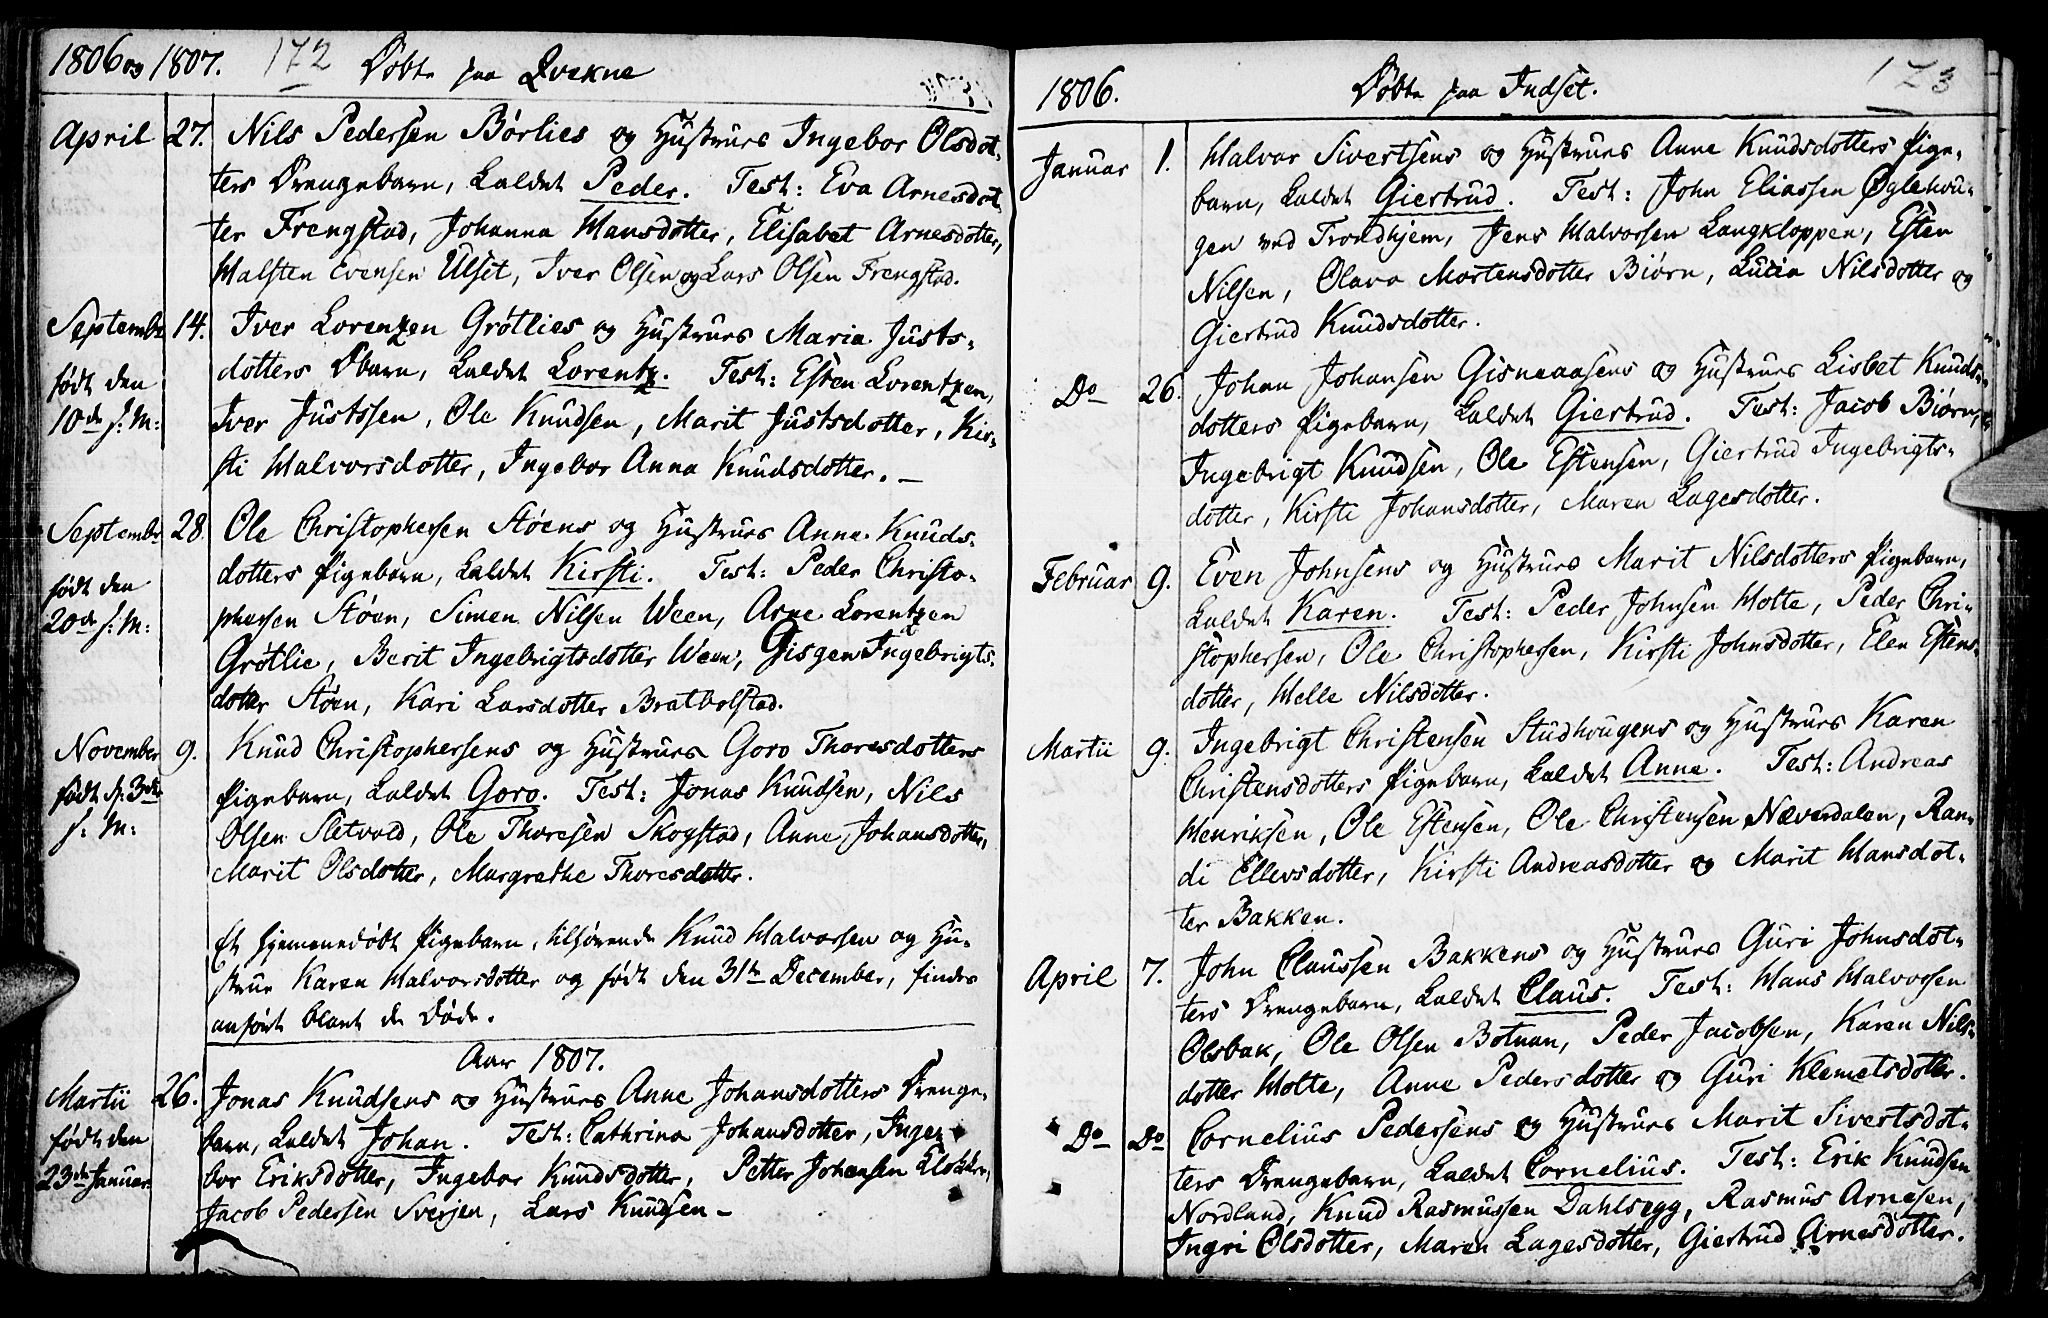 1806 og 1807. 172 Døbte paa Qvekne
April 27. Nils Pedersen Børlies og Hustrues Ingebor Olsdot-
ters Drengebarn, kaldet Peder. Test: Eva Arnesdot-
ter Frengstad, Johanna Hansdotter, Elisabet Arnesdotter,
Halsten Evensen Ulset, Iver Olsen og Lars Olsen Frengstad.
Septembr 14. Iver Lorentzen Grøtlies og Hustrues Maria Justs-
født den
10de s: M:
dotters Dbarn, kaldet Lorentz. Test: Esten Lorentzen,
Iver Justssen, Ole Knudsen, Marit Justsdotter, Kir-
sti Halvorsdotter, Ingebor Anna Knudsdotter. –
Septembr 28. Ole Christophersen Støens og Hustrues Anne Knuds-
født den
20de s: M:
dotters Pigebarn, kaldet Kirsti. Test: Peder Christo-
phersen Støen, Simen Nilsen Ween, Arne Lorentzen
Grøtlie, Berit Ingebrigtsdotter Ween, Gisgen Ingebrigts-
dotter Støen, Kari Larsdotter Bratbolstad.
November 9. Knud Christophersens og Hustrues Goro Thoresdotters
født d: 3die
s: M:
Pigebarn, kaldet Goro. Test: Jonas Knudsen, Nils
Olsen Sletvold, Ole Thoresen Skogstad, Anne Johansdotter,
Marit Olsdotter, Margrethe Thoresdotter.
Et hjemmedøbt Pigebarn, tilhørende Knud Halvorsen og Hu-
strue Karen Halvorsdotter og født den 31te December, findes
anført blant de Døde.
Aar 1807.
Martii 26. Jonas Knudsens og Hustrues Anne Johansdotters Drenge-
født den
23de Januar.
barn, kaldet Johan. Test: Cathrina Johansdotter, Inge-
bor Eriksdotter, Ingebor Knudsdotter, Petter Johansen Klokker,
Jacob Pedersen Sverjen, Lars Knudsen –
1806. Døbte paa Indset. 173
Januar 1. Halvor Sivertsens og Hustrues Anne Knudsdotters Pige-
barn, kaldet Giertrud. Test: John Eliassen Øglehou-
gen ved Trondhjem, Jens Halvorsen Langkloppen, Esten
Nilsen, Olava Mortensdotter Biørn, Lucia Nilsdotter og
Giertrud Knudsdotter.
Do 26. Johan Johansen Gisnaaasens og Hustrues Lisbet Knuds-
dotters Pigebarn, kaldet Giertrud. Test: Jacob Biørn,
Ingebrigt Knudsen, Ole Estensen, Giertrud Ingebrigts-
dotter, Kirsti Johansdotter, Maren Lagesdotter.
Februar 9. Even Johnsens og Hustrues Marit Nilsdotters Pigebarn,
kaldet Karen. Test: Peder Johnsen Holte, Peder Chri-
stophersen, Ole Christophersen, Kirsti Johnsdotter, Elen Estens-
dotter, Helle Nilsdotter.
Martii 9. Ingebrigt Christensen Studhougens og Hustrues Karen
Christensdotters Pigebarn, kaldet Anne. Test: Andreas
Henriksen, Ole Estensen, Ole Christensen Næverdalen, Ran-
di Ellevsdotter, Kirsti Andreasdotter og Marit Hansdot-
ter Bakken.
April 7. John Claussen Bakkens og Hustrues Guri Johnsdot-
ters Drengebarn, kaldet Claus. Test: Hans Halvorsen
Olsbak, Ole Olsen Botnan, Peder Jacobsen, Karen Nils-
dotter Holte, Anne Pedersdotter og Guri Klemetsdotter.
Do Do Cornelius Pedersens og Hustrues Marit Sivertsdot-
ters Drengebarn, kaldet Cornelius. Test: Erik Knudsen
Nordland, Knud Rasmussen Dahlsegg, Rasmus Arnesen,
Ingri Olsdotter, Maren Lagesdotter, Giertrud Arnesdotter.